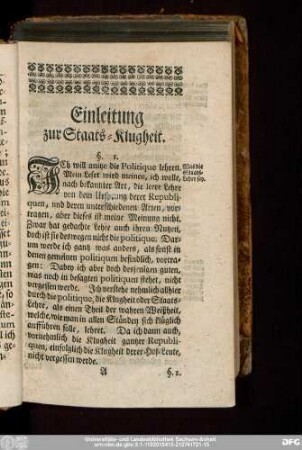 Einleitung
zur Staats-Klugheit.
§. 1.
ICh will anitzo die Politique lehren.
Mein Leser wird meinen, ich wolle,
nach bekannter Art, die leere Lehre
von dem Ursprung derer Republi-
quen, und deren unterschiedenen Arten, vor-
tragen, aber dieses ist meine Meinung nicht.
Zwar hat gedachte Lehre auch ihren Nutzen,
doch ist sie deswegen nicht die politique. Dar-
um werde ich gantz was anders, als sonst in
denen gemeinen politiquen befindlich, vortra-
gen: Dabey ich aber doch desjenigen guten,
was noch in besagten politiquen stehet, nicht
vergessen werde. Ich verstehe nehmlich allhier
durch die politique, die Klugheit oder Staats-
Lehre, als einen Theil der wahren Weißheit,
welche, wie man in allen Ständen sich klüglich
aufführen solle, lehret. Da ich dann auch,
vornehmlich die Klugheit gantzer Republi-
quen, einfolglich die Klugheit derer Hof-Leute,
nicht vergessen werde.
Was die
Staats-
Lehre sey.
A
§. 2.
Universitäts- und Landesbibliothek Sachsen-Anhalt
DFG